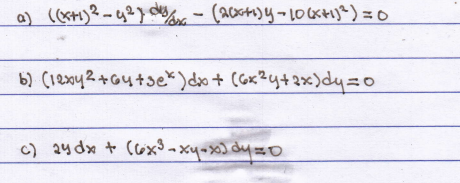 a) ((x+1)² - y²) dy/dx - (2(x+1)y - 10(x+1)²) = 0
b) (12xy² + 6y + 3eˣ) dx + (6x²y + 2x) dy = 0
c) 2y dx + (6x³ - xy - x) dy = 0